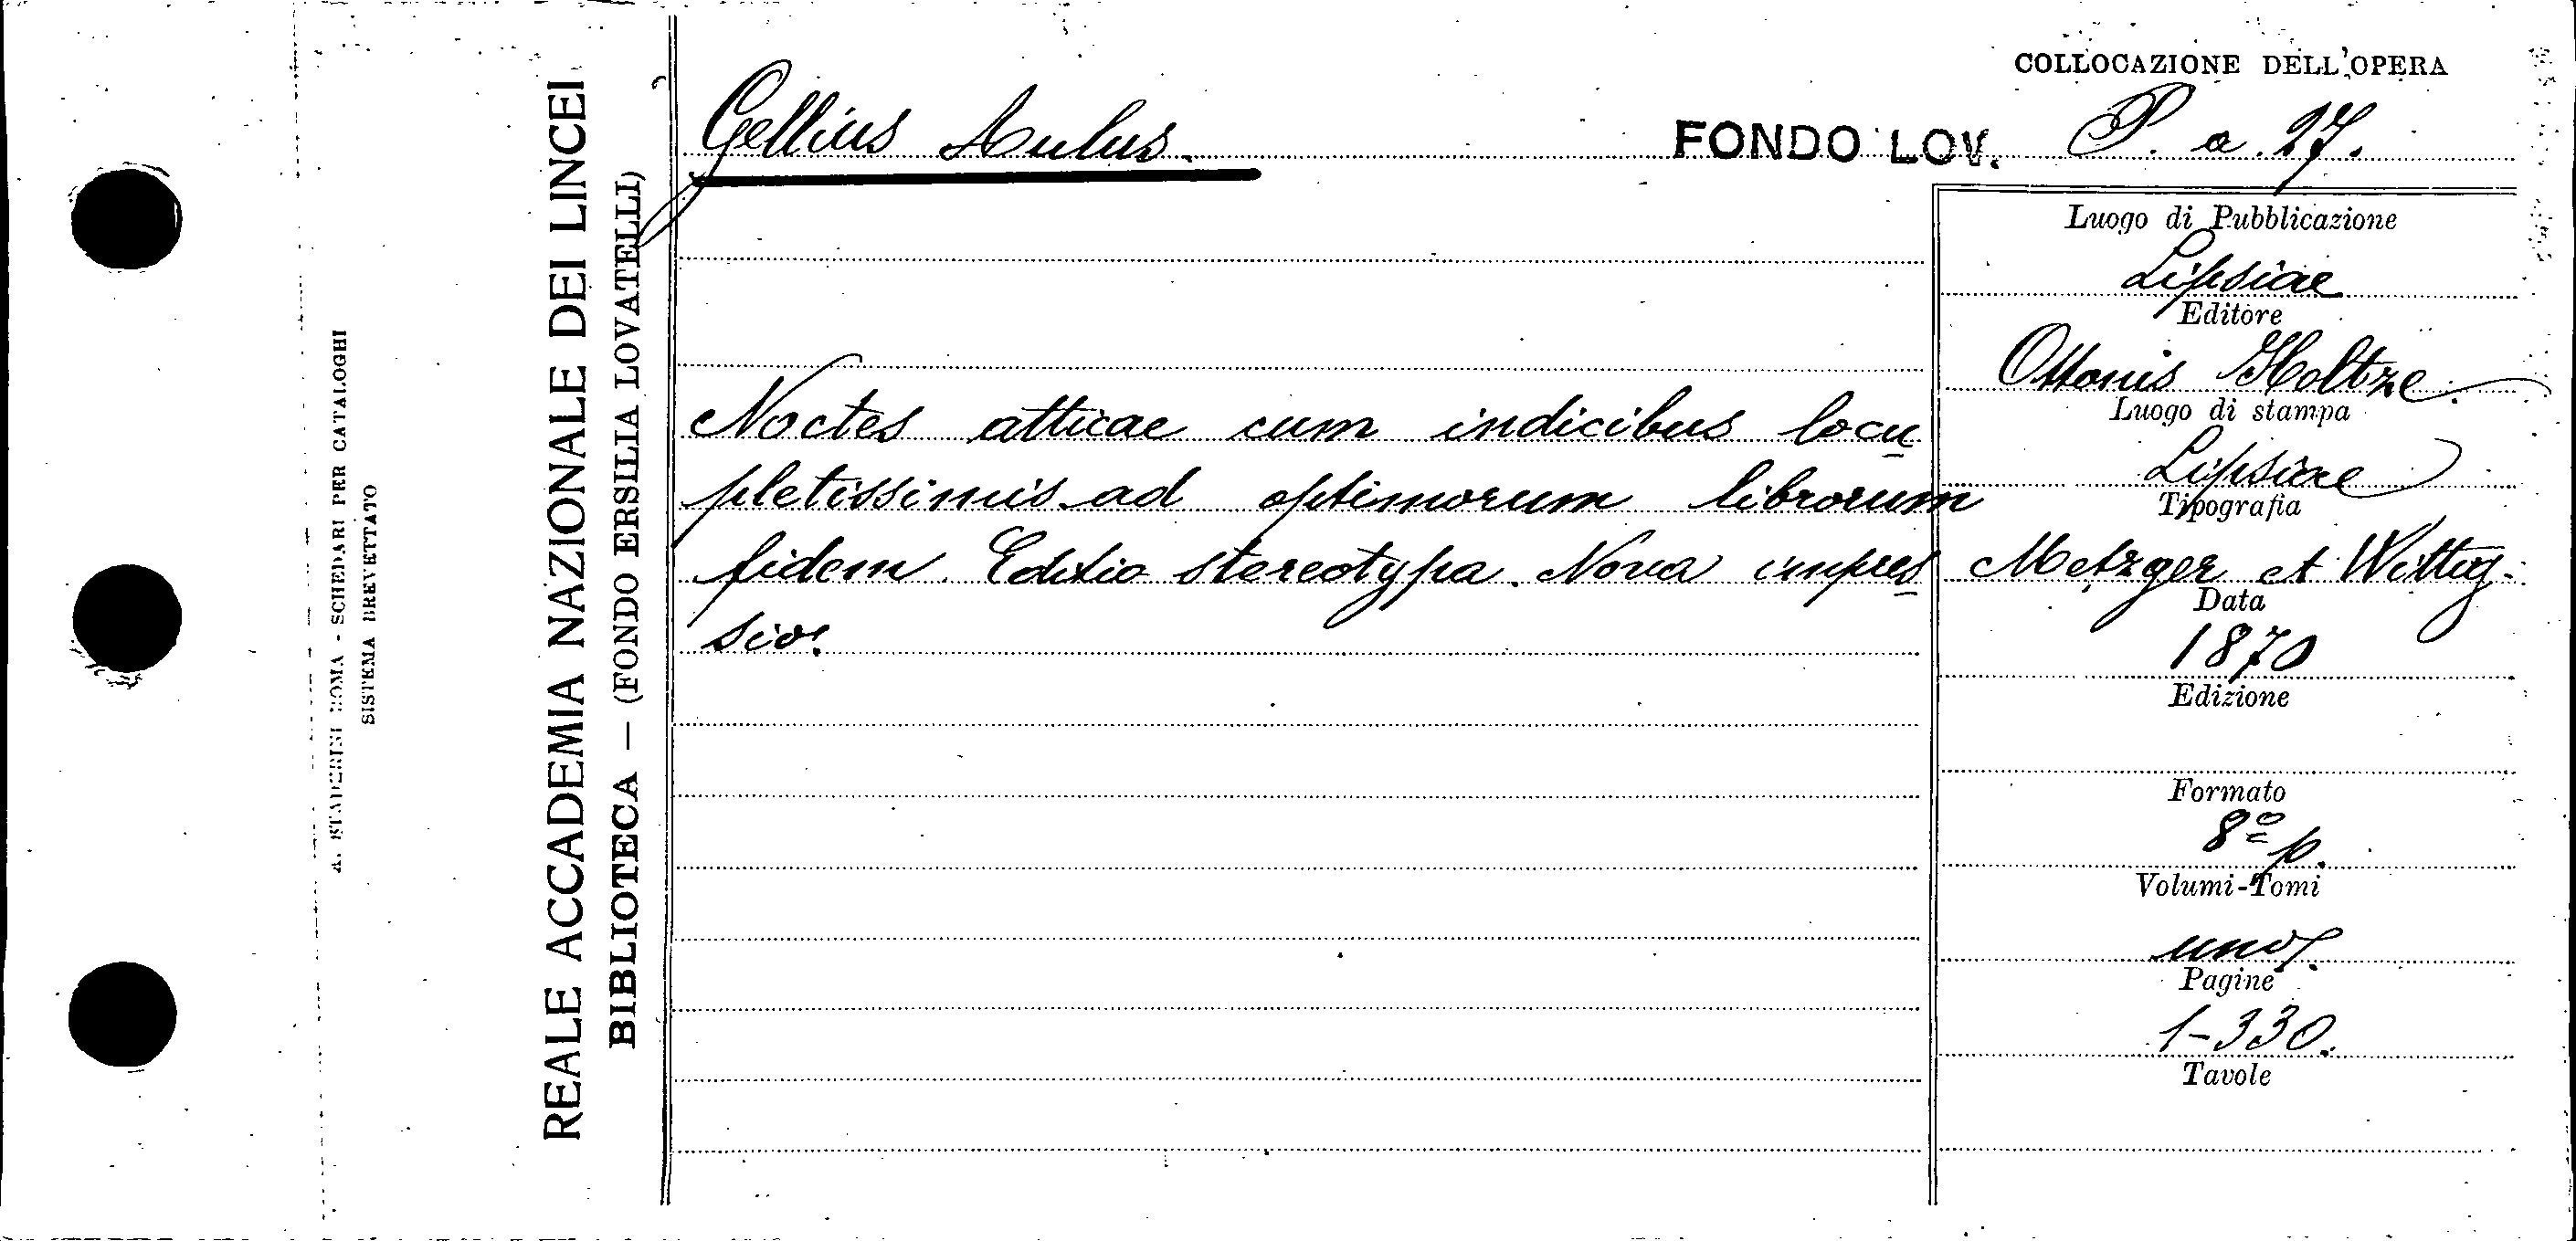 COLLOCAZIONE DELL'OPERA
Gellius Aulus.
FONDO LOV. P. a. 27.
Noctes atticae cum indicibus locu
pletissimis ad optimorum librorum
fidem. Editio stereotypa. Nova impres
sio.
Luogo di Pubblicazione
Lipsiae
Editore
Ottonis Holtze.
Luogo di stampa
Lipsiae
Tipografia
Metzger et Wittig.
Data
1870
Edizione
Formato
8º p.
Volumi-Tomi
uno.
Pagine
1-330.
Tavole
REALE ACCADEMIA NAZIONALE DEI LINCEI
BIBLIOTECA — (FONDO ERSILIA LOVATELLI)
A. STADERINI ROMA - SCHEDARI PER CATALOGHI
SISTEMA BREVETTATO